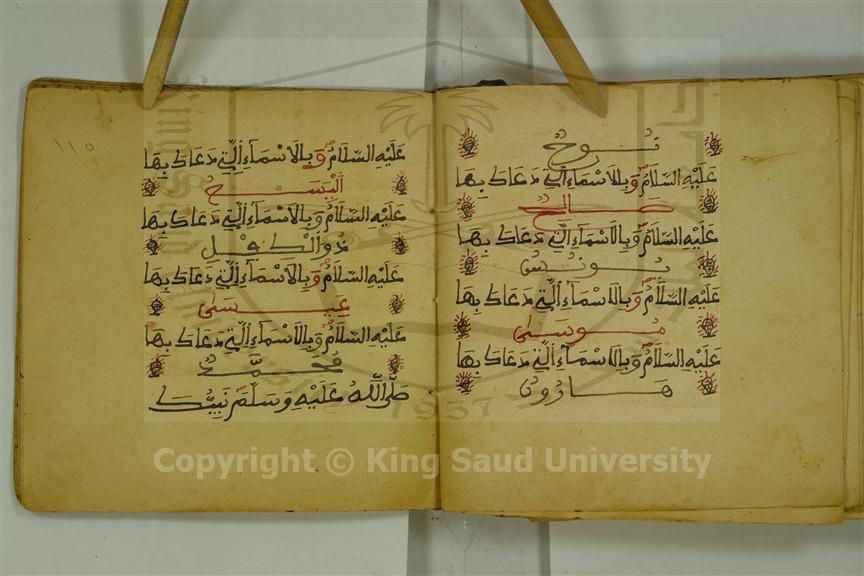 نُوحٌ
عَلَيْهِ السَّلَامُ وَبِالاَسْمَآءِ الَّتِي دَعَاكَ بِهَا
صَالِحٌ
عَلَيْهِ السَّلَامُ وَبِالاَسْمَآءِ الَّتِي دَعَاكَ بِهَا
يُونُسُ
عَلَيْهِ السَّلَامُ وَبِالاَسْمَآءِ الَّتِي دَعَاكَ بِهَا
مُوسَىٰ
عَلَيْهِ السَّلَامُ وَبِالاَسْمَآءِ الَّتِي دَعَاكَ بِهَا
هَارُونُ
١١٥
عَلَيْهِ السَّلَامُ وَبِالاَسْمَآءِ الَّتِي دَعَاكَ بِهَا
اَلْيَسَعُ
عَلَيْهِ السَّلَامُ وَبِالاَسْمَآءِ الَّتِي دَعَاكَ بِهَا
ذُو الْكِفْلِ
عَلَيْهِ السَّلَامُ وَبِالاَسْمَآءِ الَّتِي دَعَاكَ بِهَا
عِيسَىٰ
عَلَيْهِ السَّلَامُ وَبِالاَسْمَآءِ الَّتِي دَعَاكَ بِهَا
مُحَمَّدٌ
صَلَّى اللهُ عَلَيْهِ وَسَلَّمَ نَبِيُّكَ
1957
Copyright © King Saud University